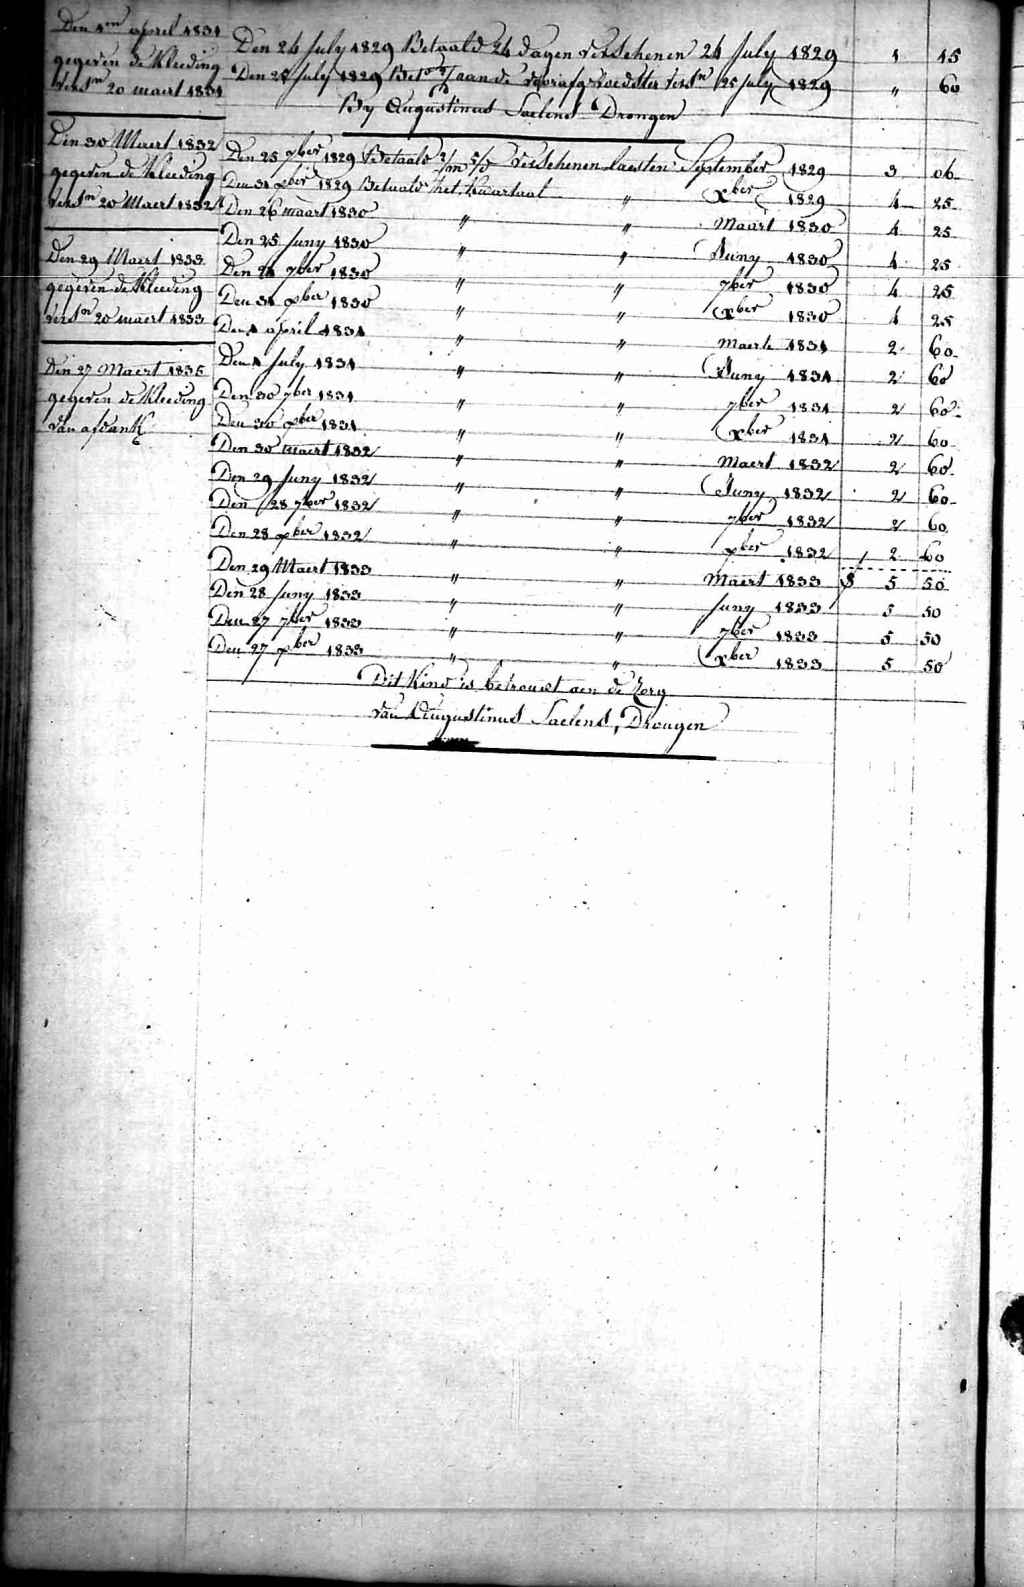 Den 1en april 1831
gegeven de Kleeding
versn 20 maert 1831
Den 30 Maert 1832
gegeven de Kleeding
versn 20 Maert 1832
Den 29 Maert 1833
gegeven de Kleeding
versn 20 maert 1833
Den 27 Maert 1835
gegeven de Kleeding
van afdank
Den 24 July 1829 Betaald 24 dagen verschenen 24 July 1829 1 15
Den 25 July 1829 aan de voedster versn 25 July 1829 " 60
By Augustinus Saelens Drongen
Den 25 7ber 1829 Betaald 2/m 5/d verschenen laesten September 1829 3 06
Den 31 xber 1829 Betaald het kwartaal " xber 1829 4 25
Den 26 maart 1830 " " Maart 1830 4 25
Den 25 Juny 1830 " " Juny 1830 4 25
Den 7ber 1830 " " 7ber 1830 4 25
Den 31 xber 1830 " " xber 1830 4 25
Den 1 april 1831 " " maerte 1831 2 60
Den 1 July 1831 " " Juny 1831 2 60
Den 30 7ber 1831 " " 7ber 1831 2 60
Den 30 xber 1831 " " xber 1831 2 60
Den 30 maert 1832 " " Maert 1832 2 60
Den 29 Juny 1832 " " Juny 1832 2 60
Den 28 7ber 1832 " " 7ber 1832 2 60
Den 28 xber 1832 " " xber 1832 2 60
Den 29 Maert 1833 " " Maert 1833 5 50
Den 28 Juny 1833 " " Juny 1833 5 50
Den 27 7ber 1833 " " 7ber 1833 5 50
Den 27 xber 1833 " " xber 1833 5 50
Dit Kind is betrouwt aen de Zorg
van Augustinus Saelens, Drongen